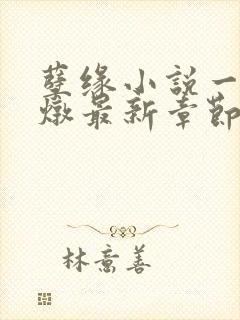 孽缘小説一
燉最新章節
林意善